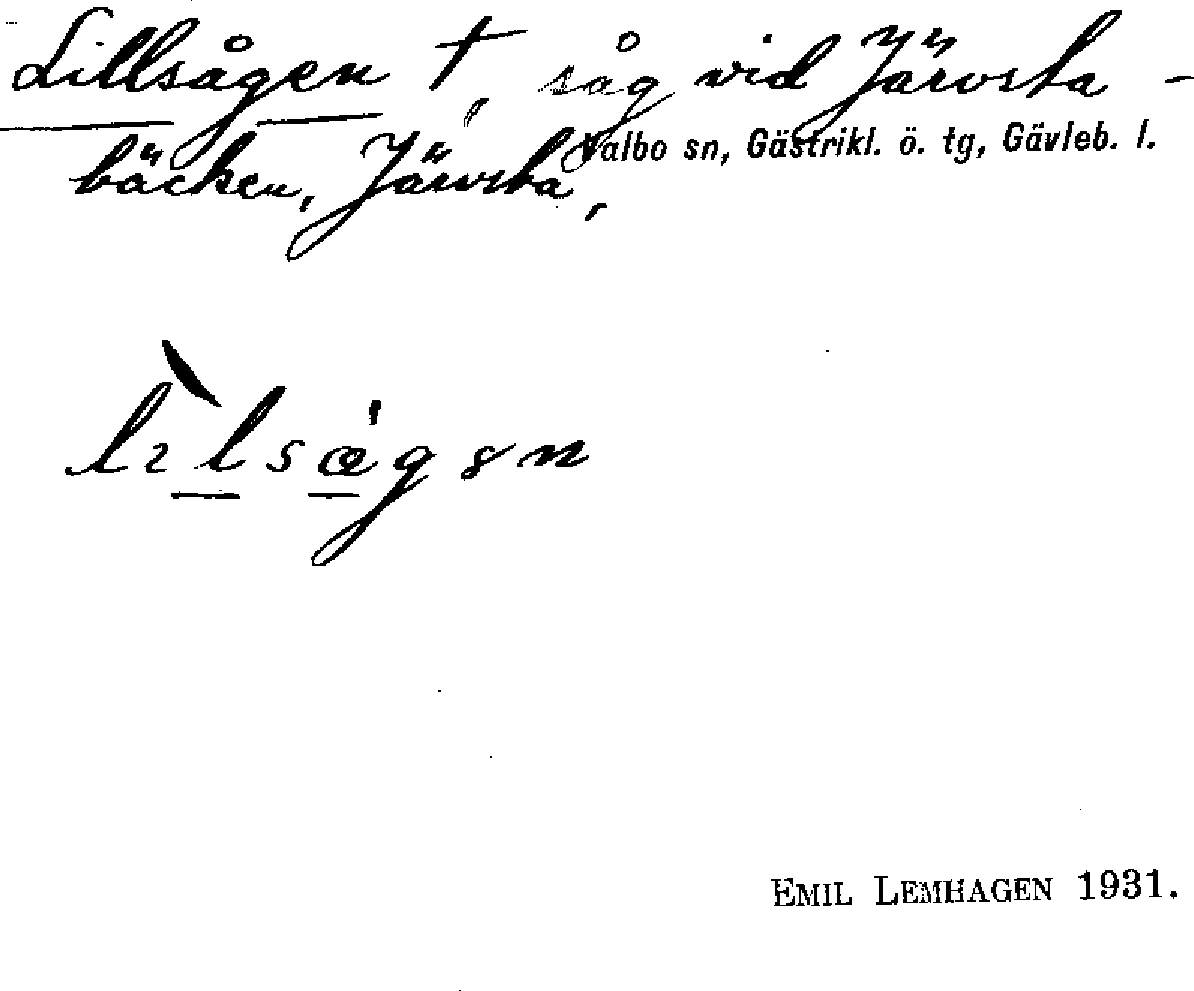 Lillsågen †, såg vid Järvsta-
bäcken, Järvsta,
Valbo sn, Gästrikl. ö. tg, Gävleb. l.
EMIL LEMHAGEN 1931.